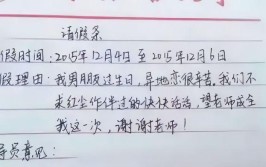 请假条
假时间：2015年12月4日至2015年12月6日
假理由：我男朋友过生日，异地恋很辛苦。我们不
求红尘作伴过的快快活活，望老师成全
我这一次，谢谢老师！
导员意见：